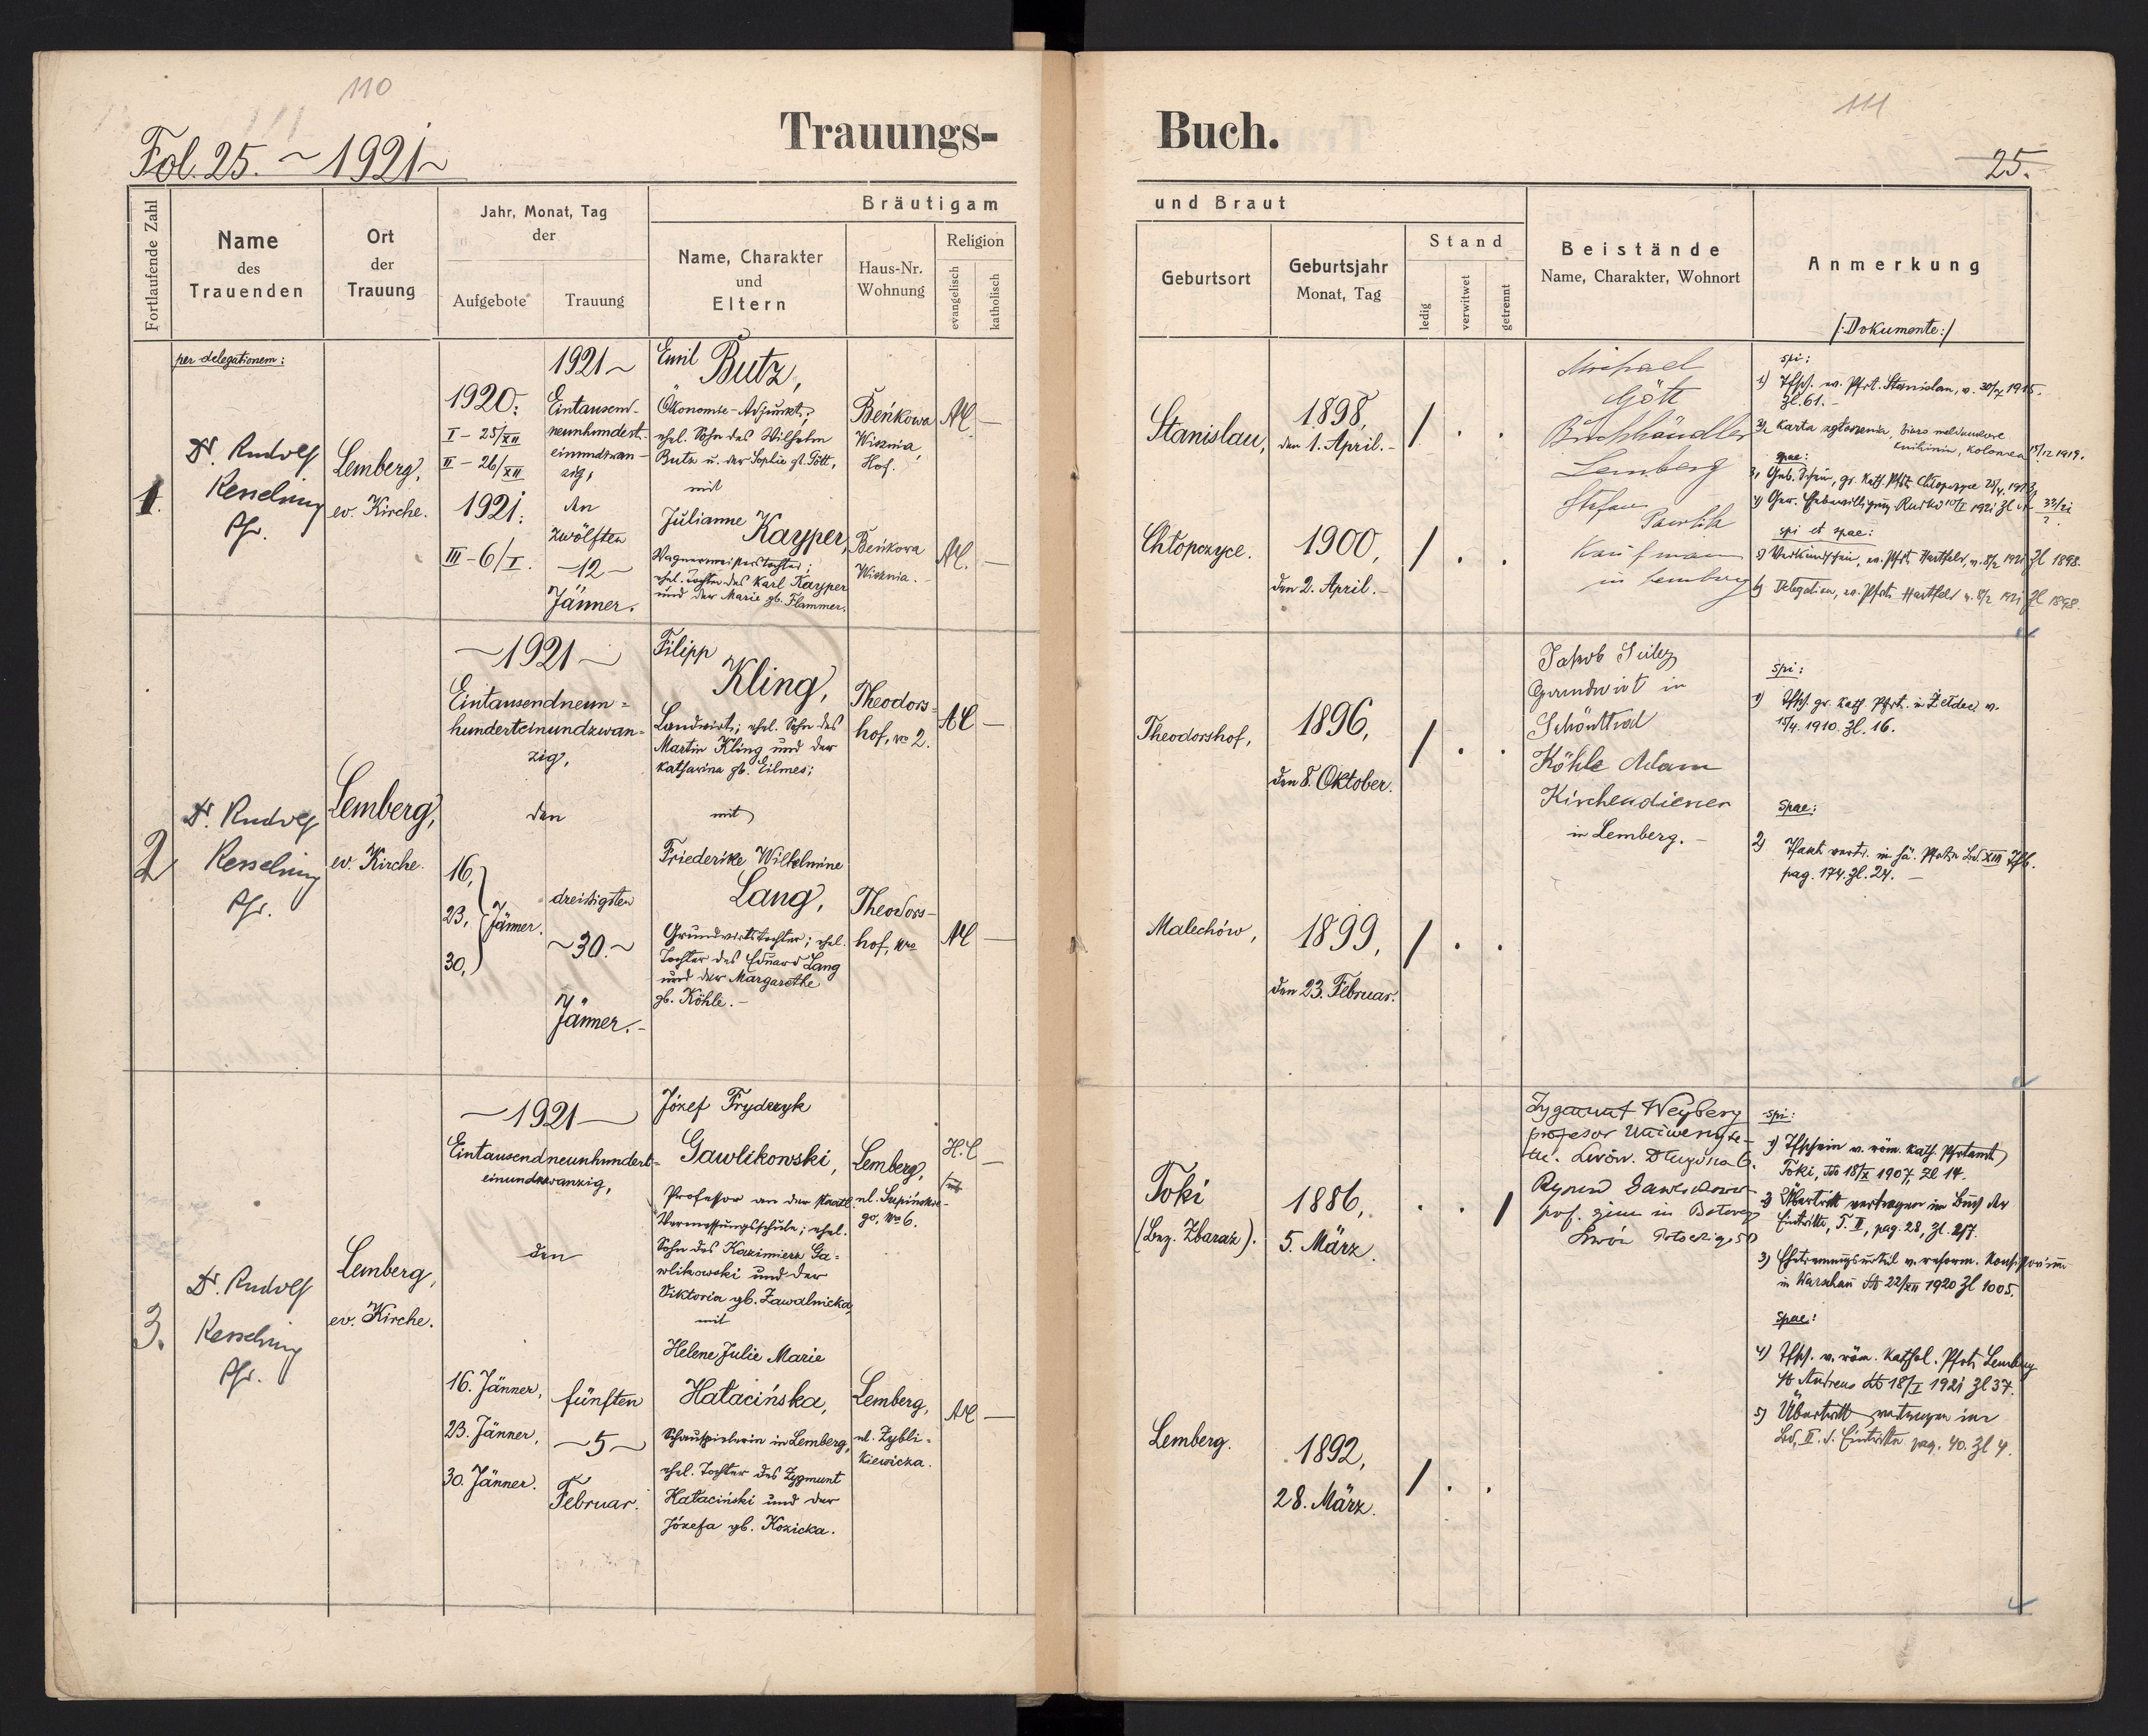 110
Fol. 25. ~ 1921 ~
Trauungs-
Fortlaufende Zahl
Name
des
Trauenden
Ort
der
Trauung
Jahr, Monat, Tag
der
Aufgebote
Trauung
Bräutigam
Name, Charakter
und
Eltern
Haus-Nr.
Wohnung
Religion
evangelisch
katholisch
1.
per delegationem:
Dr. Rudolf
Kesselring
Pfr.
Lemberg,
ev. Kirche.
1920:
I – 25/XII
II – 26/XII
1921:
III – 6/I.
1921 ~
Eintausend-
neunhundert-
einundzwan-
zig,
den
zwölften
– 12 –
Jänner.
Emil Butz,
Ökonomie-Adjunkt;
ehel. Sohn des Wilhelm
Butz u. der Sophie gb. Gött,
mit
Julianne Kayper,
Wagnermeisterstochter;
ehel. Tochter des Karl Kayper
und der Marie gb. Flammer.
Bénkowa
Wisznia,
Hof.
AC –
Bénkowa
Wisznia. –
AC. –
2
Dr. Rudolf
Kesselring
Pfr.
Lemberg,
ev. Kirche.
~ 1921 ~
Eintausendneun=
hunderteinundzwan=
zig,
den
16,
23, Jänner.
30,
dreissigsten
~ 30. ~
Jänner. –
Filipp
Kling,
Landwirt; ehel. Sohn des
Martin Kling und der
Katharina gb. Eilmes;
mit
Friederike Wilhelmine
Lang,
Grundwirtstochter; ehel.
Tochter des Eduard Lang
und der Margarethe
gb. Köhle. –
Theodors=
hof, No 2.
AC –
Theodors-
hof, No
AC –
3.
Dr. Rudolf
Kesselring
Pfr.
Lemberg,
ev. Kirche.
~ 1921 ~
Eintausendneunhundert=
einundzwanzig,
den
16. Jänner,
23. Jänner,
30. Jänner.
fünften
~ 5 ~
Februar.
Józef Fryderyk
Gawlikowski,
Professor an der staatl.
Vermessungsschule; ehel.
Sohn des Kazimierz Ga=
wlikowski und der
Viktoria gb. Zawalnicka,
mit
Helene Julie Marie
Hałacińska,
Schauspielerin in Lemberg,
ehel. Tochter des Zygmunt
Hałaciński und der
Józefa gb. Kozicka.
Lemberg,
ul. Supińskie-
go, No 6.
H.C –
Lemberg,
ul. Zybli-
kiewicza.
AC –
111
Buch.
25.
und Braut
Geburtsort
Geburtsjahr
Monat, Tag
Stand
ledig
verwitwet
getrennt
Beistände
Name, Charakter, Wohnort
Anmerkung
/:Dokumente:/
Stanislau,
1898,
den 1. April. –
/ . .
Chłopczyce.
1900,
den 2. April. –
/ . .
Michael
Gött
Buchhändler
Lemberg
Stefan
Pawlik
Kaufmann
in Lemberg
spi:
1) Tfsch. ev. Pfrt. Stanislau, v. 1915.
Zl. 61. –
2, Karta zgłoszenia, biuro meldunkowe
Knihinin, Kolonia 1919.
spae:
3, Geb. Schein, gr. kath. Pfrt. Chłopczyce
4) Ger. Ehebewilligung Rudki 1921 Zl
spi et spae:
5) Verkündschein, ev. Pfrt. Hartfeld, v. 8/2 1921 Zl 1898.
6) Delegation, ev. Pfrt. Hartfeld v. 8/2 1921 Zl 1898.
Theodorshof,
1896,
den 8. Oktober.
/ . .
Malechów,
1899,
den 23. Februar.
/ . .
Jakob
Grundwirt in
Schönthal
Köhle Adam
Kirchendiener
in Lemberg. –
spi:
1) Tfsch. gr. kath. Pfrt. in v.
15/4. 1910. Zl. 16.
spae:
2) Taufb. Bd. XIII
pag. 174. Zl. 24. –
Toki
(Bez. Zbaraż).
1886,
5. März.
. . /
Lemberg.
1892,
28. März.
/ . .
Zygmunt Weyberg
profesor Uniwersyte-
tu. Lwów. Długosza 6.
prof. gimn. im Batorego
Lwów Potockiego
spi:
1) Tfschein v. röm. kath. Pfrtamt
Toki, dto 18/X 1907, Zl 14.
2) Übertritt vertragen im Buch der
Eintritte, T. II, pag. 28, Zl. 217.
3) Ehetrennungsurteil v. reform. Konsistorium
in Warschau dto 22/XII 1920 Zl 1005.
spae:
4) Tfsch. v. röm. kathol. Pfrt. Lemberg
St. Andreas dto 18/I 1921 Zl 37.
5) Übertritt vertragen im
Bd. II. d. Eintritte pag. 40. Zl 4.